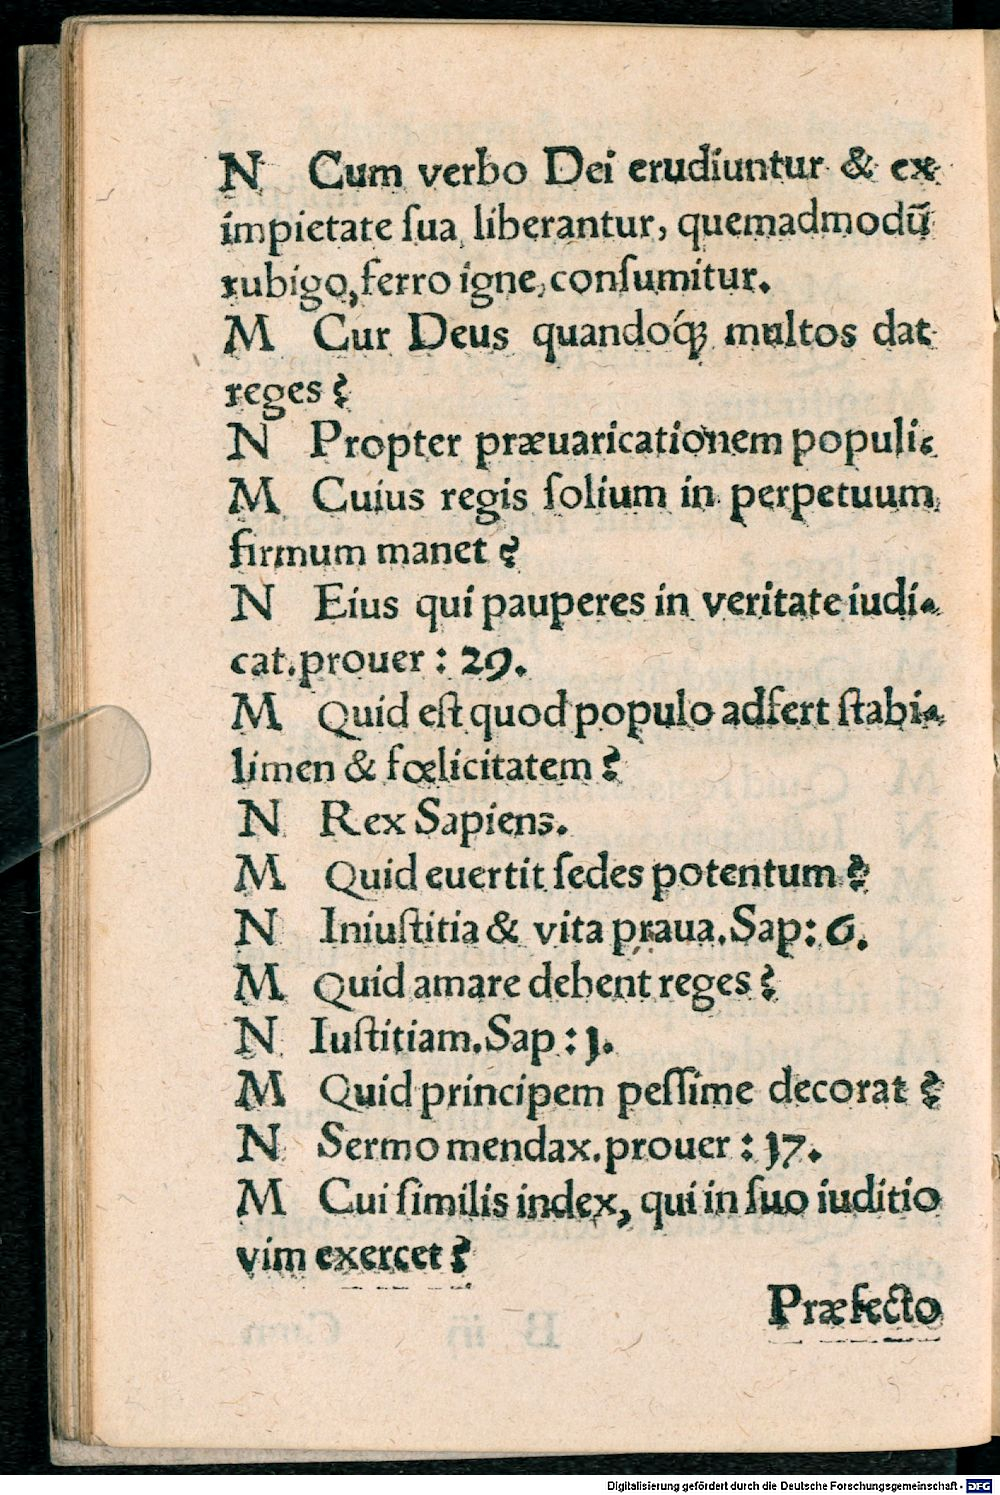 N Cum verbo Dei erudiuntur & ex
impietate ſua liberantur, quemadmodū
rubigo, ferro igne, conſumitur.
M Cur Deus quandoq́ꝫ multos dat
reges?
N Propter præuaricationem populi.
M Cuius regis ſolium in perpetuum
firmum manet?
N Eius qui pauperes in veritate iudi-
cat. prouer: 29.
M Quid eſt quod populo adfert ſtabi-
limen & fœlicitatem?
N Rex Sapiens.
M Quid euertit ſedes potentum?
N Iniuſtitia & vita praua. Sap: 6.
M Quid amare debent reges?
N Iuſtitiam. Sap: 1.
M Quid principem peſſime decorat?
N Sermo mendax. prouer: 17.
M Cui ſimilis index, qui in ſuo iuditio
vim exercet?
Præfecto
Digitalisierung gefördert durch die Deutsche Forschungsgemeinschaft - DFG